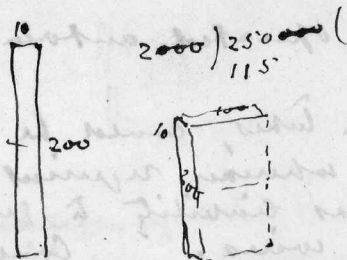 10
200
2000 ) 250000 (
115
100
10
200